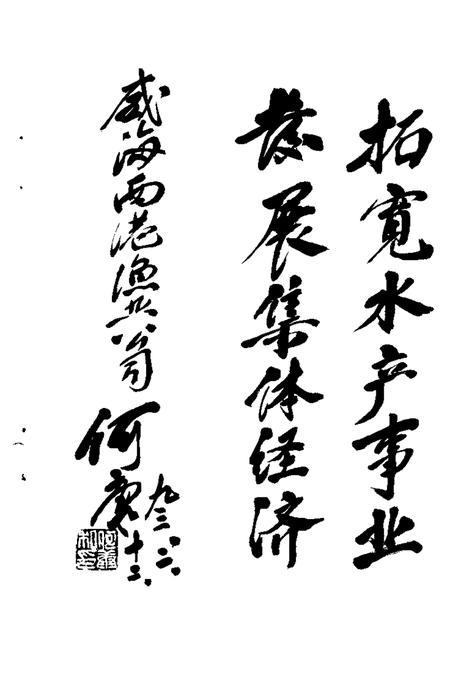 拓寬水产事业
发展集体经济
威海西港渔业公司
何康
九三
十二